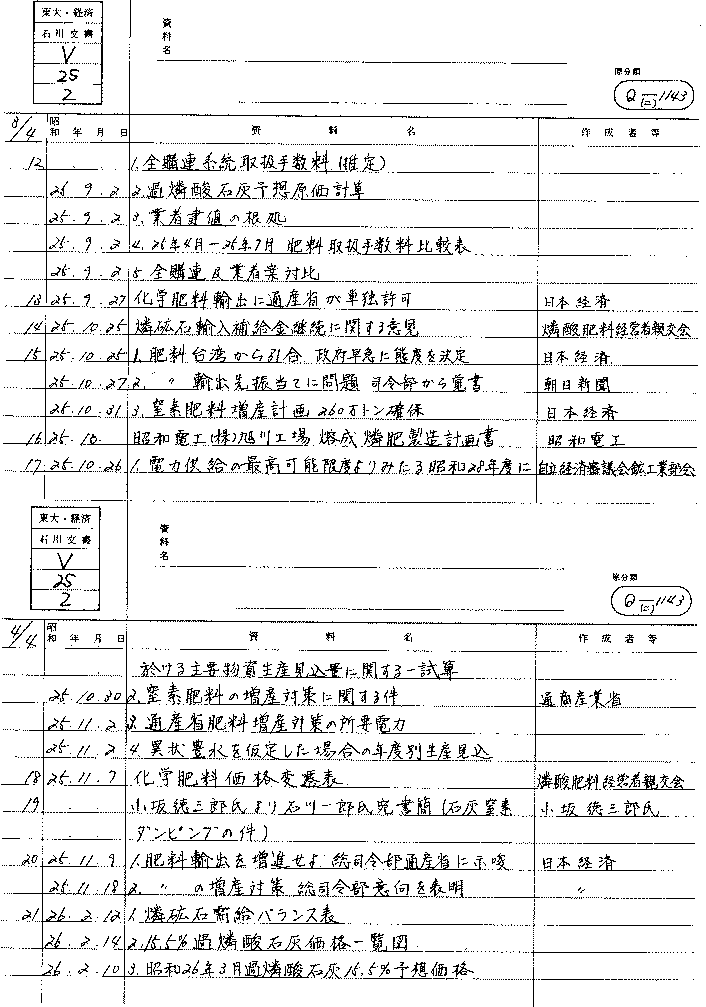 東大・経済
石川文書
V
25
2
資料名
原分類
Q(二)1143
3/4
昭和 年 月 日 資 料 名 作 成 者 等
12 1.全購連系統取扱手数料(推定)
25.9.2 2.過燐酸石灰予想原価計算
25.9.2 3.業者建値の根処
25.9.2 4.25年4月-25年7月 肥料取扱手数料比較表
25.9.2 5.全購連及業者案対比
13 25.9.27 化学肥料輸出に通産省が単独許可 日本経済
14 25.10.25 燐砿石輸入補給金継続に関する意見 燐酸肥料経営者親交会
15 25.10.25 1.肥料台湾から引合 政府早急に態度を決定 日本経済
25.10.27 2. 〃 輸出先振当てに問題 司令部から電書 朝日新聞
25.10.31 3.窒素肥料増産計画 260万トン確保 日本経済
16 25.10. 昭和電工(株)旭川工場 熔成燐肥製造計画書 昭和電工
17 25.10.26 1.電力供給の最高可能限度よりみたる昭和28年度に 自立経済審議会鉱工業部会
東大・経済
石川文書
V
25
2
資料名
原分類
Q(二)1143
4/4
昭和 年 月 日 資 料 名 作 成 者 等
於ける主要物資生産見込量に関する一試算
25.10.30 2.窒素肥料の増産対策に関する件 通商産業省
25.11.2 3.通産省肥料増産対策の所要電力
25.11.2 4.異状豊水を仮定した場合の年度別生産見込
18 25.11.7 化学肥料価格変遷表 燐酸肥料経営者親交会
19 小坂徳三郎氏より石川一郎氏宛書簡(石灰窒素 小坂徳三郎氏
ダンピングの件)
20 25.11.9 1.肥料輸出を増進せよ 総司令部通産省に示唆 日本経済
25.11.18 2. 〃 の増産対策 総司令部意向を表明 〃
21 26.2.12 1.燐砿石需給バランス表
26.2.14 2.15.5%過燐酸石灰価格一覧図
26.2.10 3.昭和26年3月過燐酸石灰15.5%予想価格